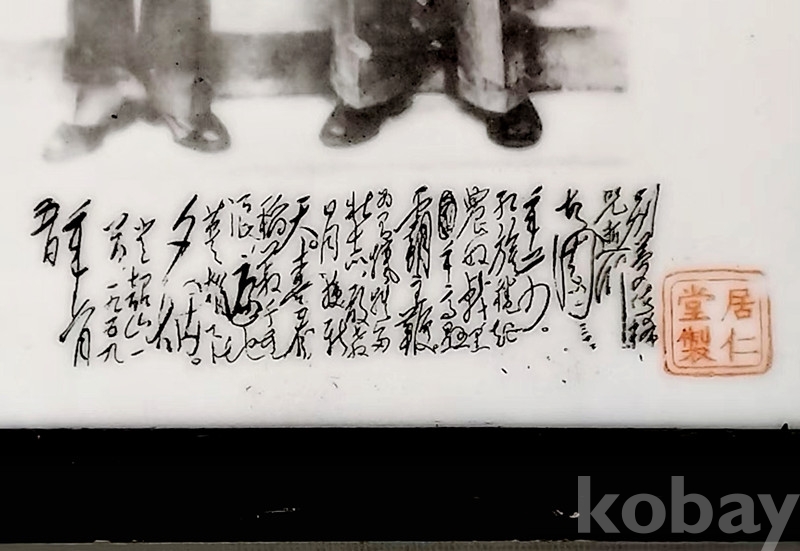 别梦依稀
咒逝川
故园三十
红旗卷起
農奴戟黑
手高悬
霸主鞭
为有犧牲多
壮志敢教
日月换新
天。喜看
稻菽千重
浪
英雄下
夕烟。
韶山一
九五九
居仁
堂製
kobay